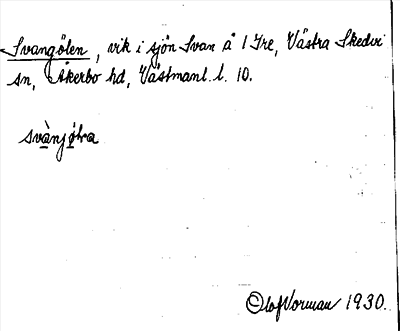 Svangölen, vik i sjön Svan å 1 Ire, Västra Skedvi
sn, Åkerbo hd, Västmanl. l. 10.
svànjøtra
Olof Vorman 1930.